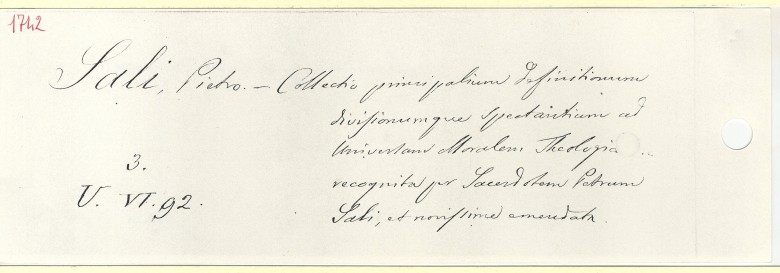 1742
Sali, Pietro. — Collectio principalium definitionum
divisionumque spectantium ad
Universam Moralem Theologia ...
recognita per Sacerdotem Petrum
Sali, et novissime emendata.
3.
U. VI. 92.